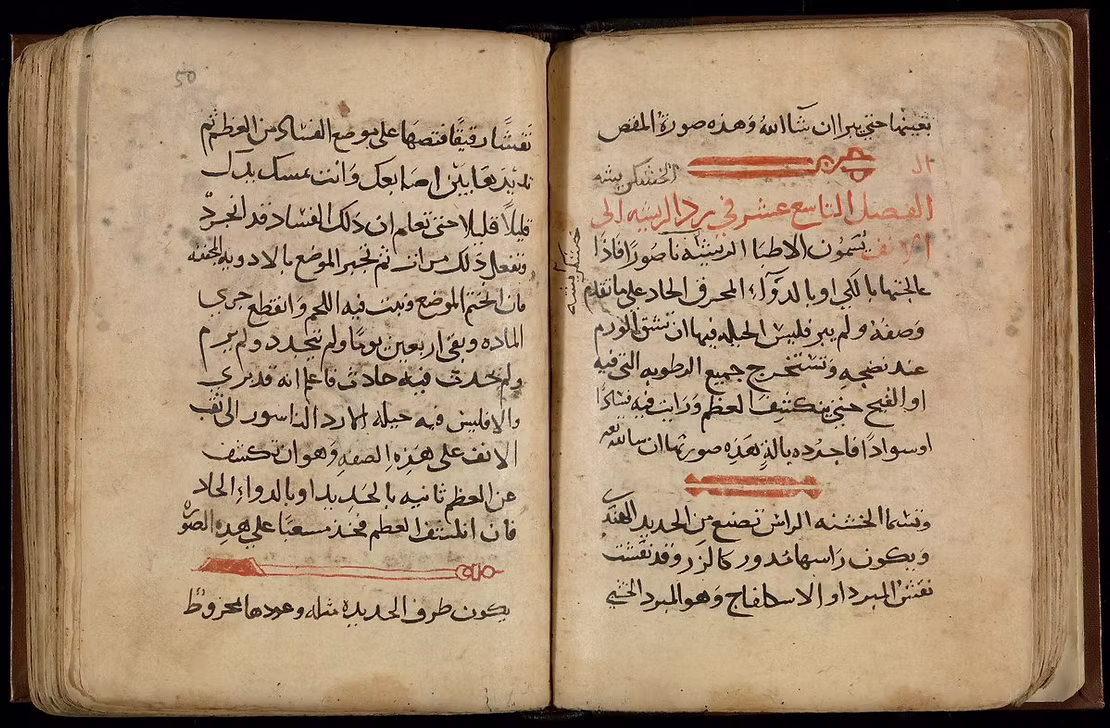 تعينها حتى يبرا ان شا الله وهذه صورة المقص
ال
الخشكريشه
الفصل التاسع عشر في رد الريشه الى
الانف يسمون الاطبا الريشه ناصورا فاذا
عالجتها بالكي او بالدوآء المحرق الحاد على ما تقدم
وصفه ولم يبر فليس الحيله فيها ان تشق الورم
عند نضجه وتستخرج جميع الرطوبه التي فيه
او القيح حتى ينكشف العظم ورايت فيه فسادا
او سوادا فاجرده بالة هذه صورتها ان شا الله
وتسما الخشنه الراس تصنع من الحديد الهندي
ويكون راسها مدور كالزر وقد نقشت
نقش المبرد او الاسكلفاج وهو المبرد الخشبي
خشكريشه
50
نقشا رقيقا فتضعها على موضع الفساد من العظم ثم
تديرها بين اصابعك وانت تمسك بيدك
قليلا قليلا حتى تعلم ان ذلك الفساد قد انجرد
وتفعل ذلك مرات ثم تجبر الموضع بالادويه المجففه
فان التحم الموضع ونبت فيه اللحم وانقطع جري
الماده وبقى اربعين يوما ولم يتجدد ولم يرم
ولم يحدث فيه حادث فاعلم انه قد بري
والا فليس فيه حيله الا رد الناسور الى ثقب
الانف على هذه الصفه وهو ان تكشف
عن العظم ثانيه بالحديد او بالدواء الحاد
فان انكشف العظم فخذ مسعبا على هذه الصوره
يكون طرف الحديده مثله وعودها مخروط